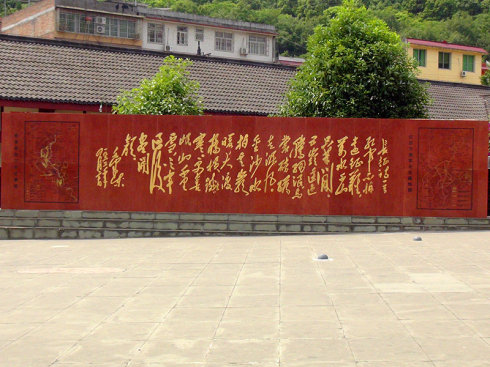 长征诗一首
紅軍不怕
遠征難
萬水千山
只等闲
五岭逶迤
腾细浪乌
蒙磅礴
走泥丸
金沙水
拍云崖
暖大渡
桥横铁索
寒更喜
岷山千
里雪三軍
过後
尽开
颜
毛泽东